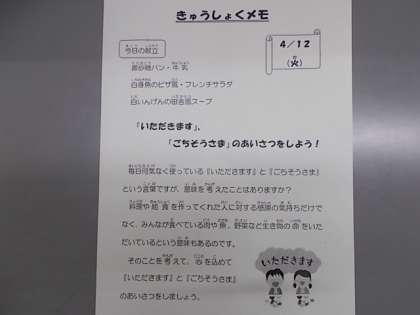 きゅうしょくメモ
4/12
(火)
今日の献立
黒砂糖パン・牛乳
白身魚のピザ風・フレンチサラダ
白いんげんの田舎風スープ
「いただきます」、
「ごちそうさま」のあいさつをしよう！
毎日何気なく使っている『いただきます』と『ごちそうさま』
という言葉ですが、意味を考えたことはありますか？
料理や給食を作ってくれた人に対する感謝の気持ちだけで
なく、みんなが食べている肉や魚、野菜など生き物の命をいた
だいているという意味もあるのです。
そのことを考えて、心を込めて
『いただきます』と『ごちそうさま』
のあいさつをしましょう。
いただきます